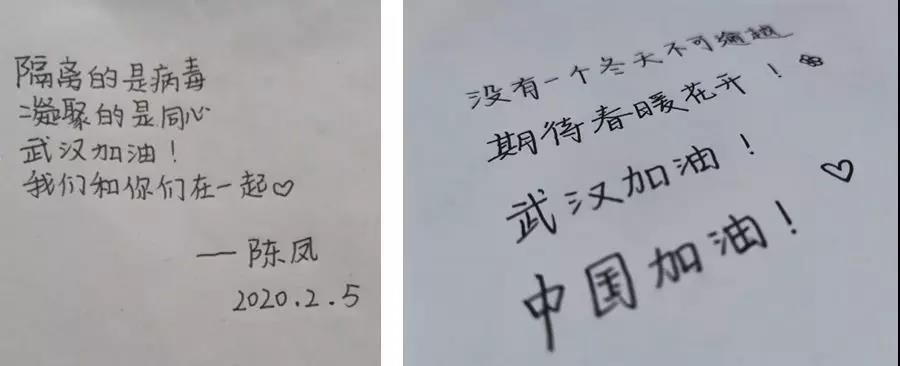 隔离的是病毒
凝聚的是同心
武汉加油！
我们和你们在一起♡
——陈凤
2020.2.5
没有一个冬天不可逾越
期待春暖花开！
武汉加油！♡
中国加油！